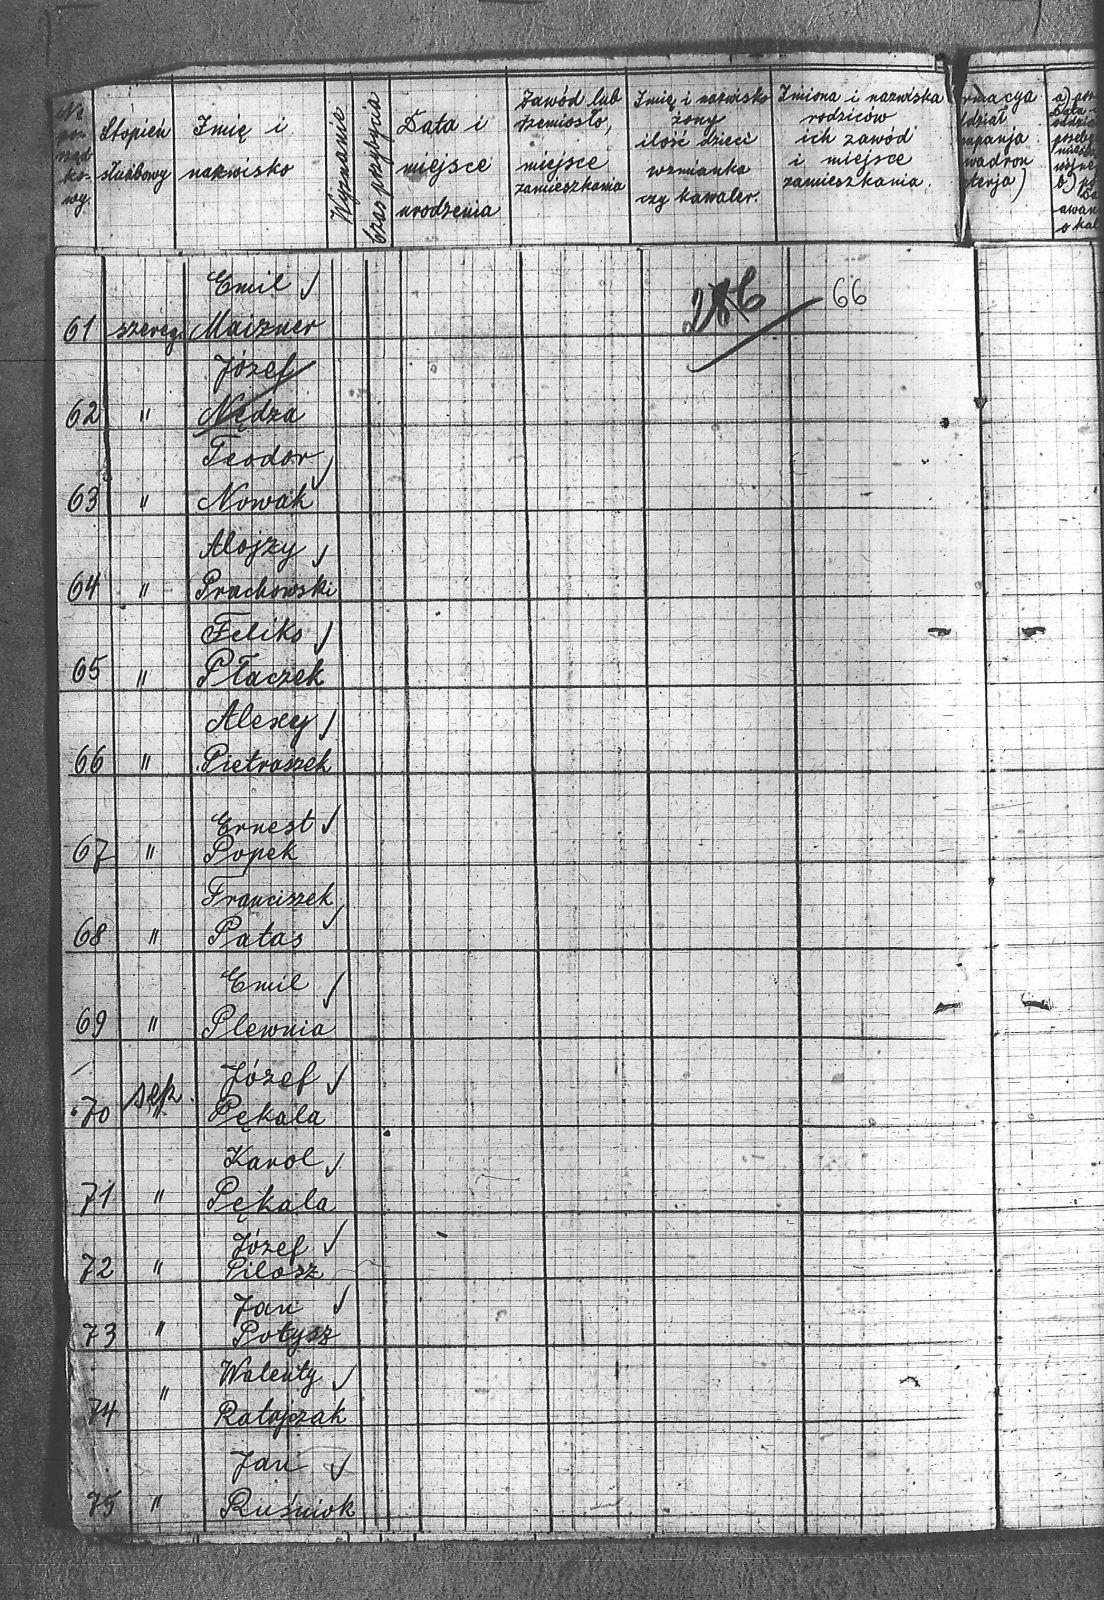 № po- rząd- ko- wy.
Stopień służbowy
Imię i nazwisko
Wyznanie
Czas przybycia
Data i miejsce urodzenia
Zawód lub rzemiosło, miejsce zamieszkania
Imię i nazwisko żony ilość dzieci wzmianka czy kawaler.
Imiona i nazwiska rodziców ich zawód i miejsce zamieszkania.
rmacya
dział
mpanja
wadron
terja)
Emil
286 66
61 szereg. Maizner
Józef
62 " Nędza
Teodor
63 " Nowak
Alojzy
64 " Prachowski
Feliks
65 " Płaczek
Alexy
66 " Pietraszek
Ernest
67 " Popek
Franciszek
68 " Patas
Emil
69 " Plewnia
Józef
70 " Pękala
Karol
71 " Pękala
Józef
72 " Pilosz
Jan
73 " Potysz
Walenty
74 " Ratajczak
Jan
75 " Ruśniok